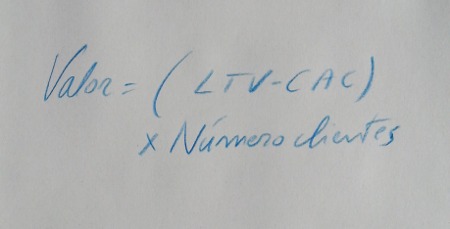 Valor = (LTV-CAC)
x Número clientes